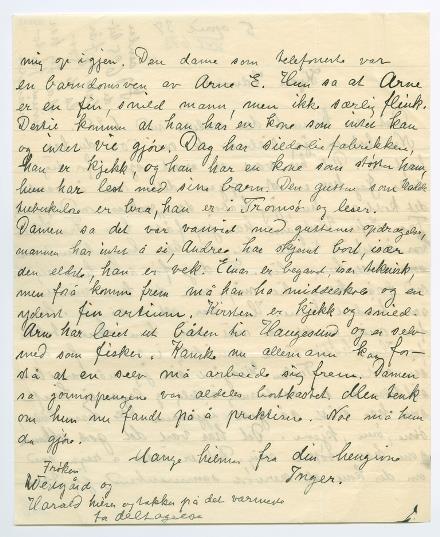 mig op igjen. Den dame som telefonerte var
en barndomsven av Arne E. Hun sa at Arne
er en fin, snild mann, men ikke særlig flink.
Dertil kommer at han har en kone som intet kan
og intet vil gjøre. Dag har sildoljefabrikken,
han er kjekk, og han har en kone som støtter ham,
hun har lest med sine barn. Den gutten som hadde
tuberkulose er bra, han er i Tromsø og leser.
Damen sa det var vanvid med guttenes opdragelse,
mannen har intet å si, Andrea har skjemt bort, især
den eldste, han er vek. Einar er begavet, især teknisk,
men for å komme frem må han ha middelskole og en
ytderst fin artium. Kirsten er kjekk og snild.
Arne har leiet ut båten til Haugesund og er selv
med som fisker. Kanske nu allemann kan for-
stå at en selv må arbeide sig frem. Damen
sa gjørmorpengene var aldeles bortkastet. Men tenk
om hun nu fandt på å praktisere. Noe må hun
da gjøre.
Mange hilsner fra din hengivne
Inger.
Frøken
Weigård og
Harald hilser og takker på det varmeste
for deltagelse